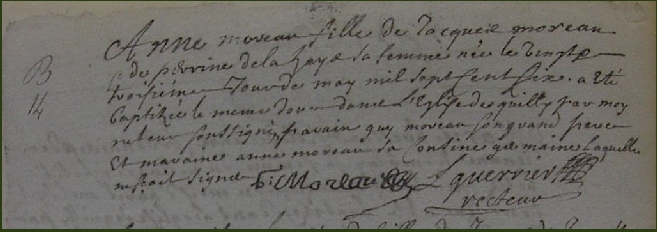 B
14
Anne moreau fille de Jacques moreau
& de perrine de la haye sa femme née le vingt &
troisieme Jour de may mil sept sent six. a eté
baptizée le meme Jour dans L'Eglise de quilly par moy
recteur soussigné, parain guy moreau son grand pere
Et maraine anne moreau sa Cousine germaine Laquelle
ne sait signer G: Moreau L guerrier
recteur